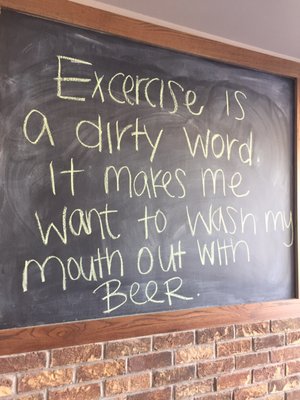 Excercise is
a dirty word.
It makes me
want to wash my
mouth out with
BEER.